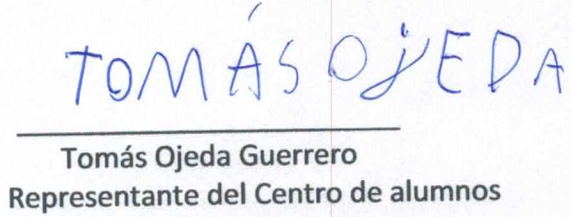 TOMÁS OJEDA
Tomás Ojeda Guerrero
Representante del Centro de alumnos